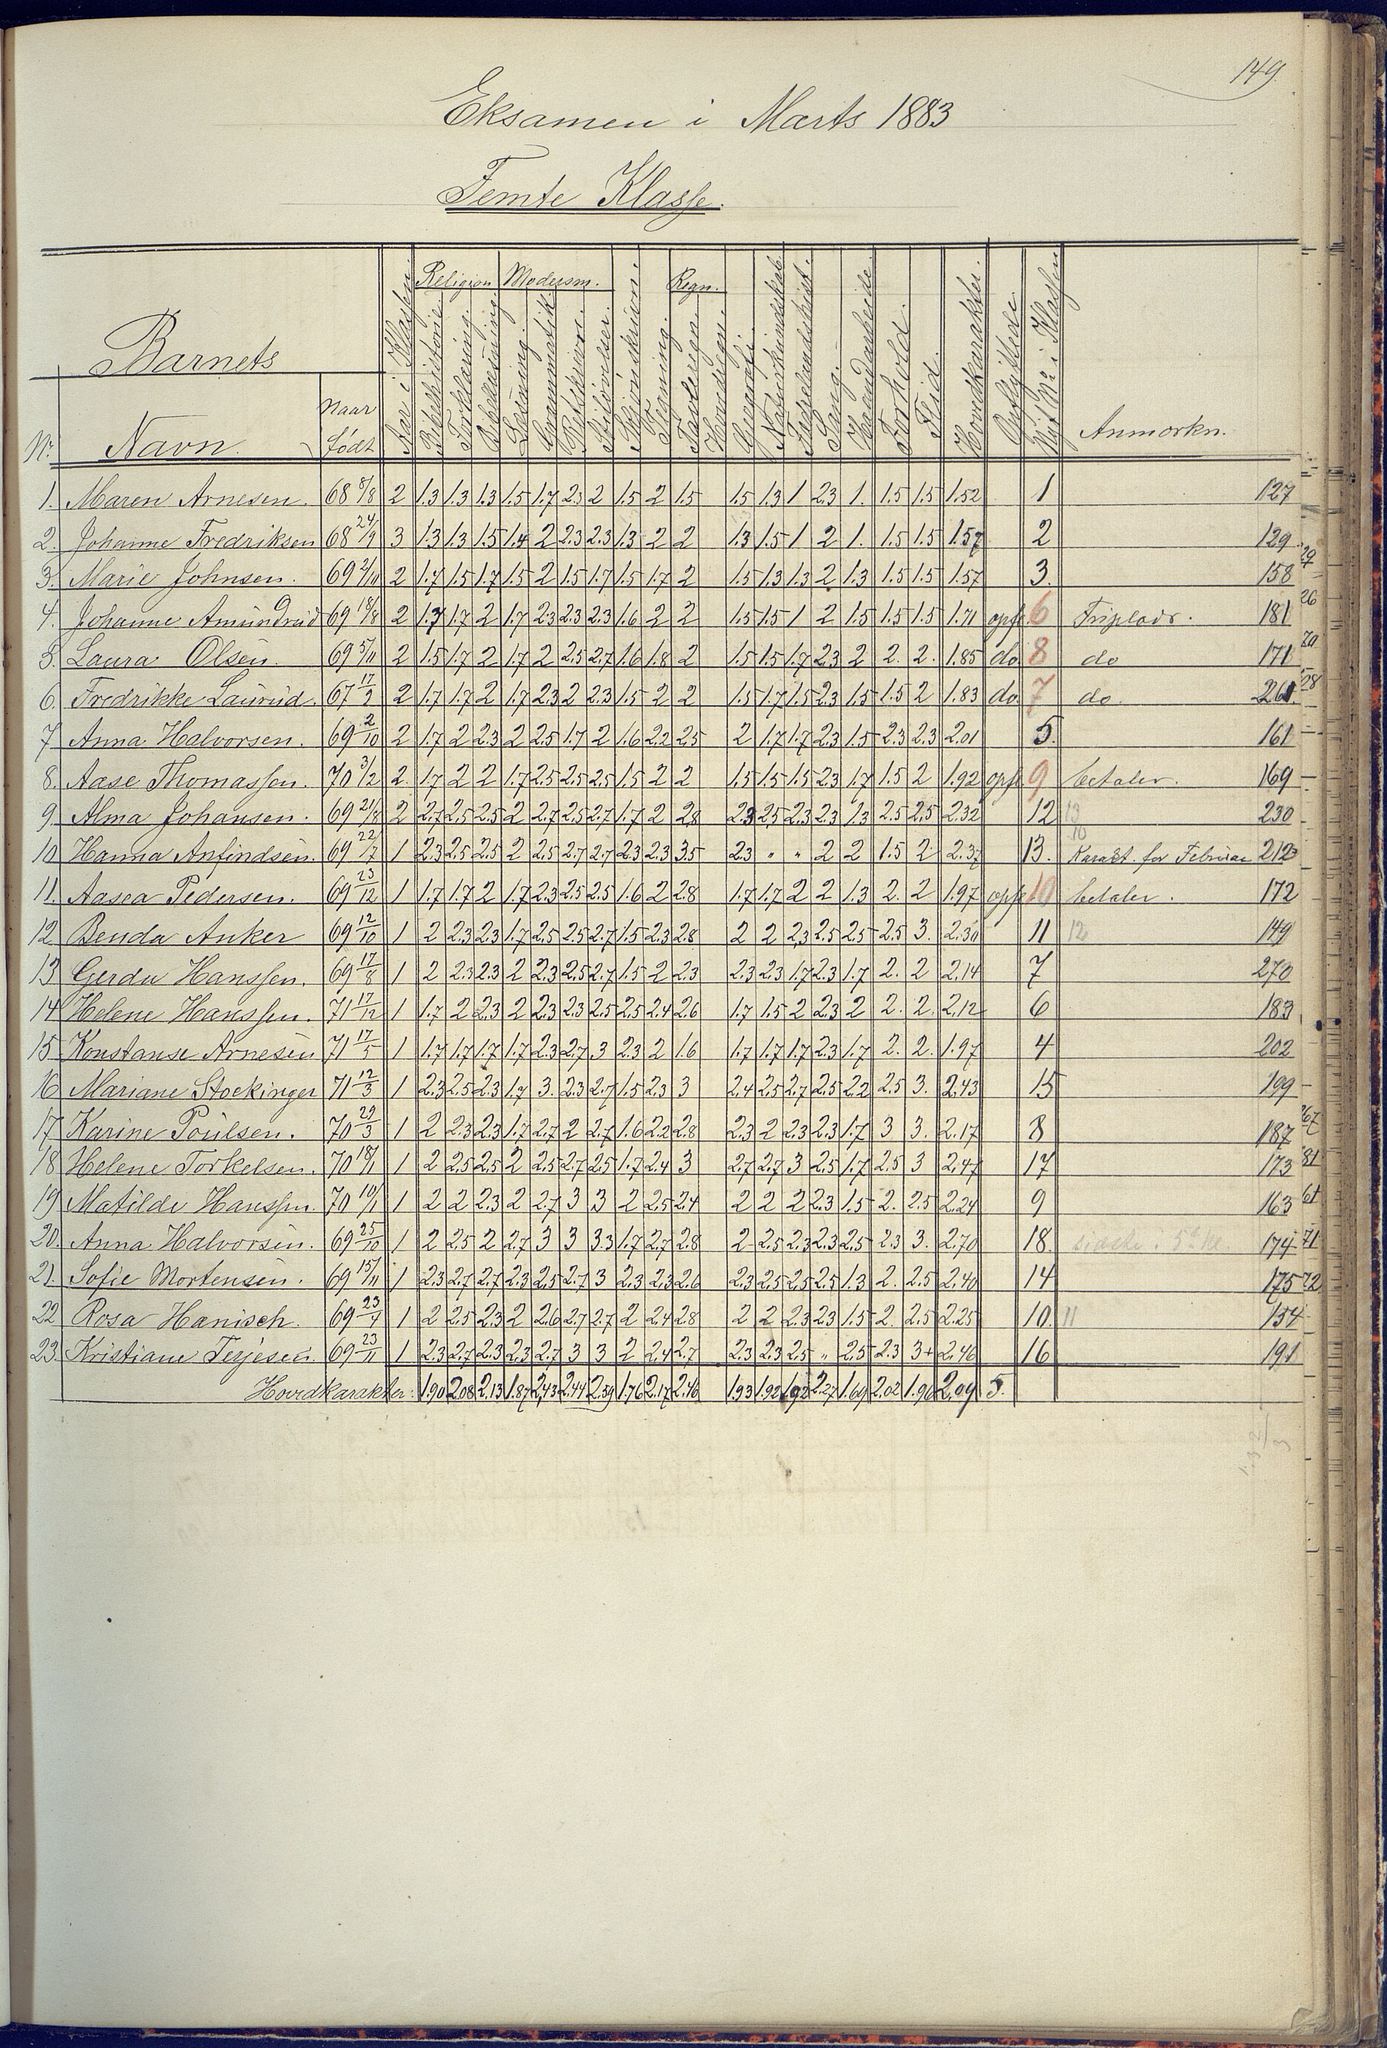 149
Eksamen i Marts 1883
Femte Klasse.
Barnets
Religion Modersm. Regn.
Nr. Navn. Naar født Aar i Klassen Bibelhistorie Forklaring. Oplæsning Læsning. Grammatik Retskrivn. Stiløvelser Skjønskrivn. Tegning. Tavleregn. Hovedregn. Geografi. Naturkundskab. Fædrelandshist. Sang. Haandarbeide Forhold. Flid. Hovedkarakter. Opflyttede. Nyt No i Klassen Anmærkn.
1. Maren Arnesen. 68 8/8 2 1.3 1.3 1.3 1.5 1.7 2.3 2 1.5 2 1.5 1.5 1.3 1 2.3 1. 1.5 1.5 1.52 1 127
2. Johanne Fredriksen 68 24/9 3 1.3 1.3 1.5 1.4 2 2.3 2.3 1.3 2 2 1.3 1.5 1 2 1. 1.5 1.5 1.57 2 129
3. Marie Johnsen. 69 2/11 2 1.7 1.5 1.7 1.5 2 1.5 1.7 1.5 1.7 2 1.5 1.3 1.3 2 1.3 1.5 1.5 1.57 3. 158
4. Johanne Amundrud 69 18/8 2 1.7 1.7 2 1.7 2.3 2.3 2.3 1.6 2 2 1.5 1.5 1 2 1.5 1.5 1.5 1.71 opf 6 Friplads. 181
5. Laura Olsen. 69 5/11 2 1.5 1.7 2 1.7 2 2.5 2.7 1.6 1.8 2 1.5 1.5 1.7 2.3 2 2. 2. 1.85 do 8 do 171
6. Fredrikke Laurud. 67 17/9 2 1.7 1.7 2 1.7 2.3 2 2.3 1.5 2 2 1.5 1.7 1.5 2.3 1.5 1.5 2 1.83 do. 7 do. 261.
7. Anna Halvorsen. 69 2/10 2 1.7 2 2.3 2 2.5 1.7 2 1.6 2.2 2.5 2 1.7 1.7 2.3 1.5 2.3 2.3 2.01 5. 161
8. Aase Thomassen. 70 3/12 2. 1.7 2 2 1.7 2.5 2.5 2.5 1.5 2 2 1.5 1.5 1.5 2.3 1.7 1.5 2 1.92 opf 9 betaler. 169
9. Alma Johansen. 69 21/8 2 2.7 2.5 2.5 2 2.7 2.5 2.7 1.7 2 2.8 2.3 2.5 2.3 2.3 1.3 2.5 2.5 2.32 12 13 230
10. Hanna Anfindsen. 69 22/7 1 2.3 2.5 2.5 2 2.5 2.7 2.7 2.3 2.3 3.5 2.3 " " 2 2 1.5 2 2.37 13. Karakt. for Februar 212
11. Aasea Pedersen. 69 23/12 1 1.7 1.7 2 1.7 2.3 2.5 2.5 1.6 2 2.8 1.7 1.7 2 2 1.3 2. 2 1.97 opf 10 betaler. 172
12. Benda Anker 69 12/10 1 2 2.3 2.3 1.7 2.5 2.5 2.7 1.5 2.3 2.8 2 2 2.3 2.5 2.5 2.5 3. 2.30 11 12 149
13 Gerda Hanssen. 69 17/8 1 2 2.3 2.3 2 2.3 2.5 2.7 1.5 2 2.3 2.3 2.3 1.7 2.3 1.7 2. 2 2.14 7 270
14 Helene Hanssen. 71 17/12 1 1.7 2 2.3 2 2.3 2.3 2.5 2.5 2.4 2.6 1.7 1.5 2 2.3 2 2. 2. 2.12 6 183
15 Konstanse Arnesen 71 17/5 1 1.7 1.7 1.7 1.7 2.3 2.7 3 2.3 2 1.6 1.7 1.7 1.7 2.3 1.7 2. 2. 1.97 4 202
16 Mariane Stockinger 71 12/3 1 2.3 2.5 2.3 1.7 3. 2.3 2.7 1.5 2.3 3 2.4 2.5 2.7 2.5 2.2 2.5 3. 2.43 15 199
17 Karine Poulsen. 70 29/3 1 2 2.3 2.3 1.7 2.7 2 2.7 1.6 2.2 2.8 2.3 2 2.3 2.3 1.7 3 3. 2.17 8 187
18 Helene Torkelsen. 70 18/1 1 2 2.5 2.5 2 2.5 2.7 2.5 1.7 2.4 3 2.7 2.7 3 2.5 1.7 2.5 3 2.47 17 173
19 Matilde Hanssen. 70 10/1 1 2 2 2.3 2 2.7 3 3 2 2.5 2.4 2 2 2 2.3 1.5 2. 2.5 2.24 9 163
20. Anna Halvorsen. 69 25/10 1 2 2.5 2 2.7 3 3 3.3 1.7 2.7 2.8 2 2.5 2.3 2.3 2.5 2.3 3. 2.70 18. 174
21. Sofie Mortensen. 69 15/11 1 2.3 2.7 2.7 2.3 2.5 2.7 3 2.3 2.3 2.6 2.3 2.5 2.5 2.5 1.3 2. 2.5 2.40 14 175
22 Rosa Hanisch. 69 23/4 1 2 2.5 2.3 2 2.6 2.7 2.7 2 2.4 2.8 2 2 2.3 2.3 1.5 2. 2.5 2.25 10. 11 154
23. Kristiane Terjesen. 69 23/11 1 2.3 2.7 2.3 2.3 2.7 3 3 2 2.4 2.7 2.3 2.3 2.5 " 2.5 2.3 3+ 2.46 16 191
Hovedkarakter: 1.90 2.08 2.13 1.87 2.43 2.44 2.59 1.76 2.17 2.46 1.93 1.92 1.92 2.27 1.69 2.02 1.96 2.09 5.